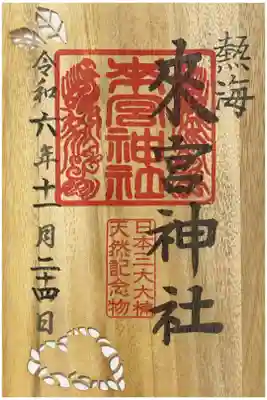 熱海
來宮神社
來宮神社
日本三大大楠
天然記念物
令和六年十一月二十四日